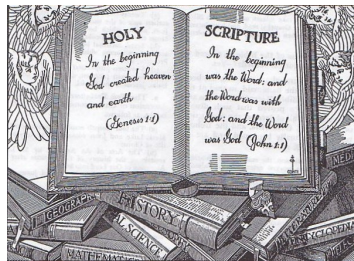 HOLY
In the beginning
God created heaven
and earth
(Genesis 1:1)
SCRIPTURE
In the beginning
was the Word: and
the Word was with
God: and the Word
was God (John 1:1)
GEOGRAPHY
HISTORY
AL SCIENCE
MATHEMAT